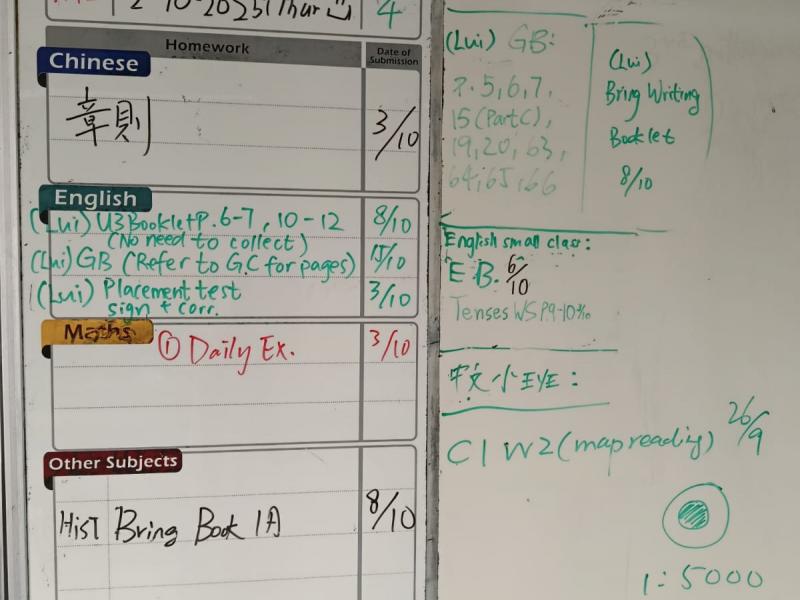 2-10-2025(Thur) 4
Homework
Date of Submission
Chinese
章則 3/10
English
(Lui) U3 Booklet P.6-7, 10-12 8/10
(No need to collect)
(Lui) GB (Refer to G.C for pages) 15/10
(Lui) Placement test 3/10
sign + corr.
Maths
① Daily Ex. 3/10
Other Subjects
HIST Bring Book 1A 8/10
(Lui) GB:
P. 5, 6, 7,
15 (Part C),
19, 20, 63,
64, 65, 66
(Lui)
Bring Writing
Booklet
8/10
English small class:
E B. 6/10
Tenses WS P.9-10
中文小
C1 W2 (map reading) 26/9
1:5000